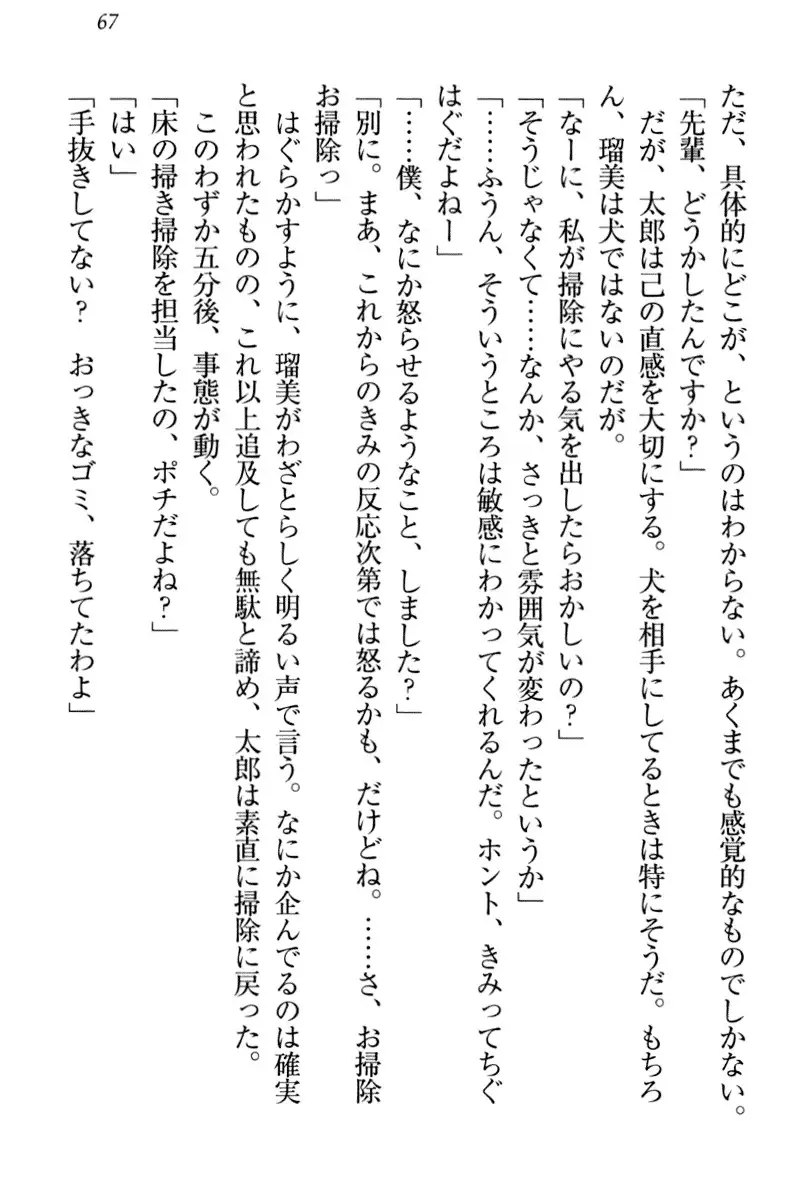 67
ただ、具体的にどこが、というのはわからない。あくまでも感覚的なものでしかない。
「先輩、どうかしたんですか？」
だが、太郎は己の直感を大切にする。犬を相手にしてるときは特にそうだ。もちろ
ん、瑠美は犬ではないのだが。
「なーに、私が掃除にやる気を出したらおかしいの？」
「そうじゃなくて……なんか、さっきと雰囲気が変わったというか」
「……ふうん、そういうところは敏感にわかってくれるんだ。ホント、きみってちぐ
はぐだよねー」
「……僕、なにか怒らせるようなこと、しました？」
「別に。まあ、これからのきみの反応次第では怒るかも、だけどね。……さ、お掃除
お掃除っ」
はぐらかすように、瑠美がわざとらしく明るい声で言う。なにか企んでるのは確実
と思われたものの、これ以上追及しても無駄と諦め、太郎は素直に掃除に戻った。
このわずか五分後、事態が動く。
「床の掃き掃除を担当したの、ポチだよね？」
「はい」
「手抜きしてない？　おっきなゴミ、落ちてたわよ」